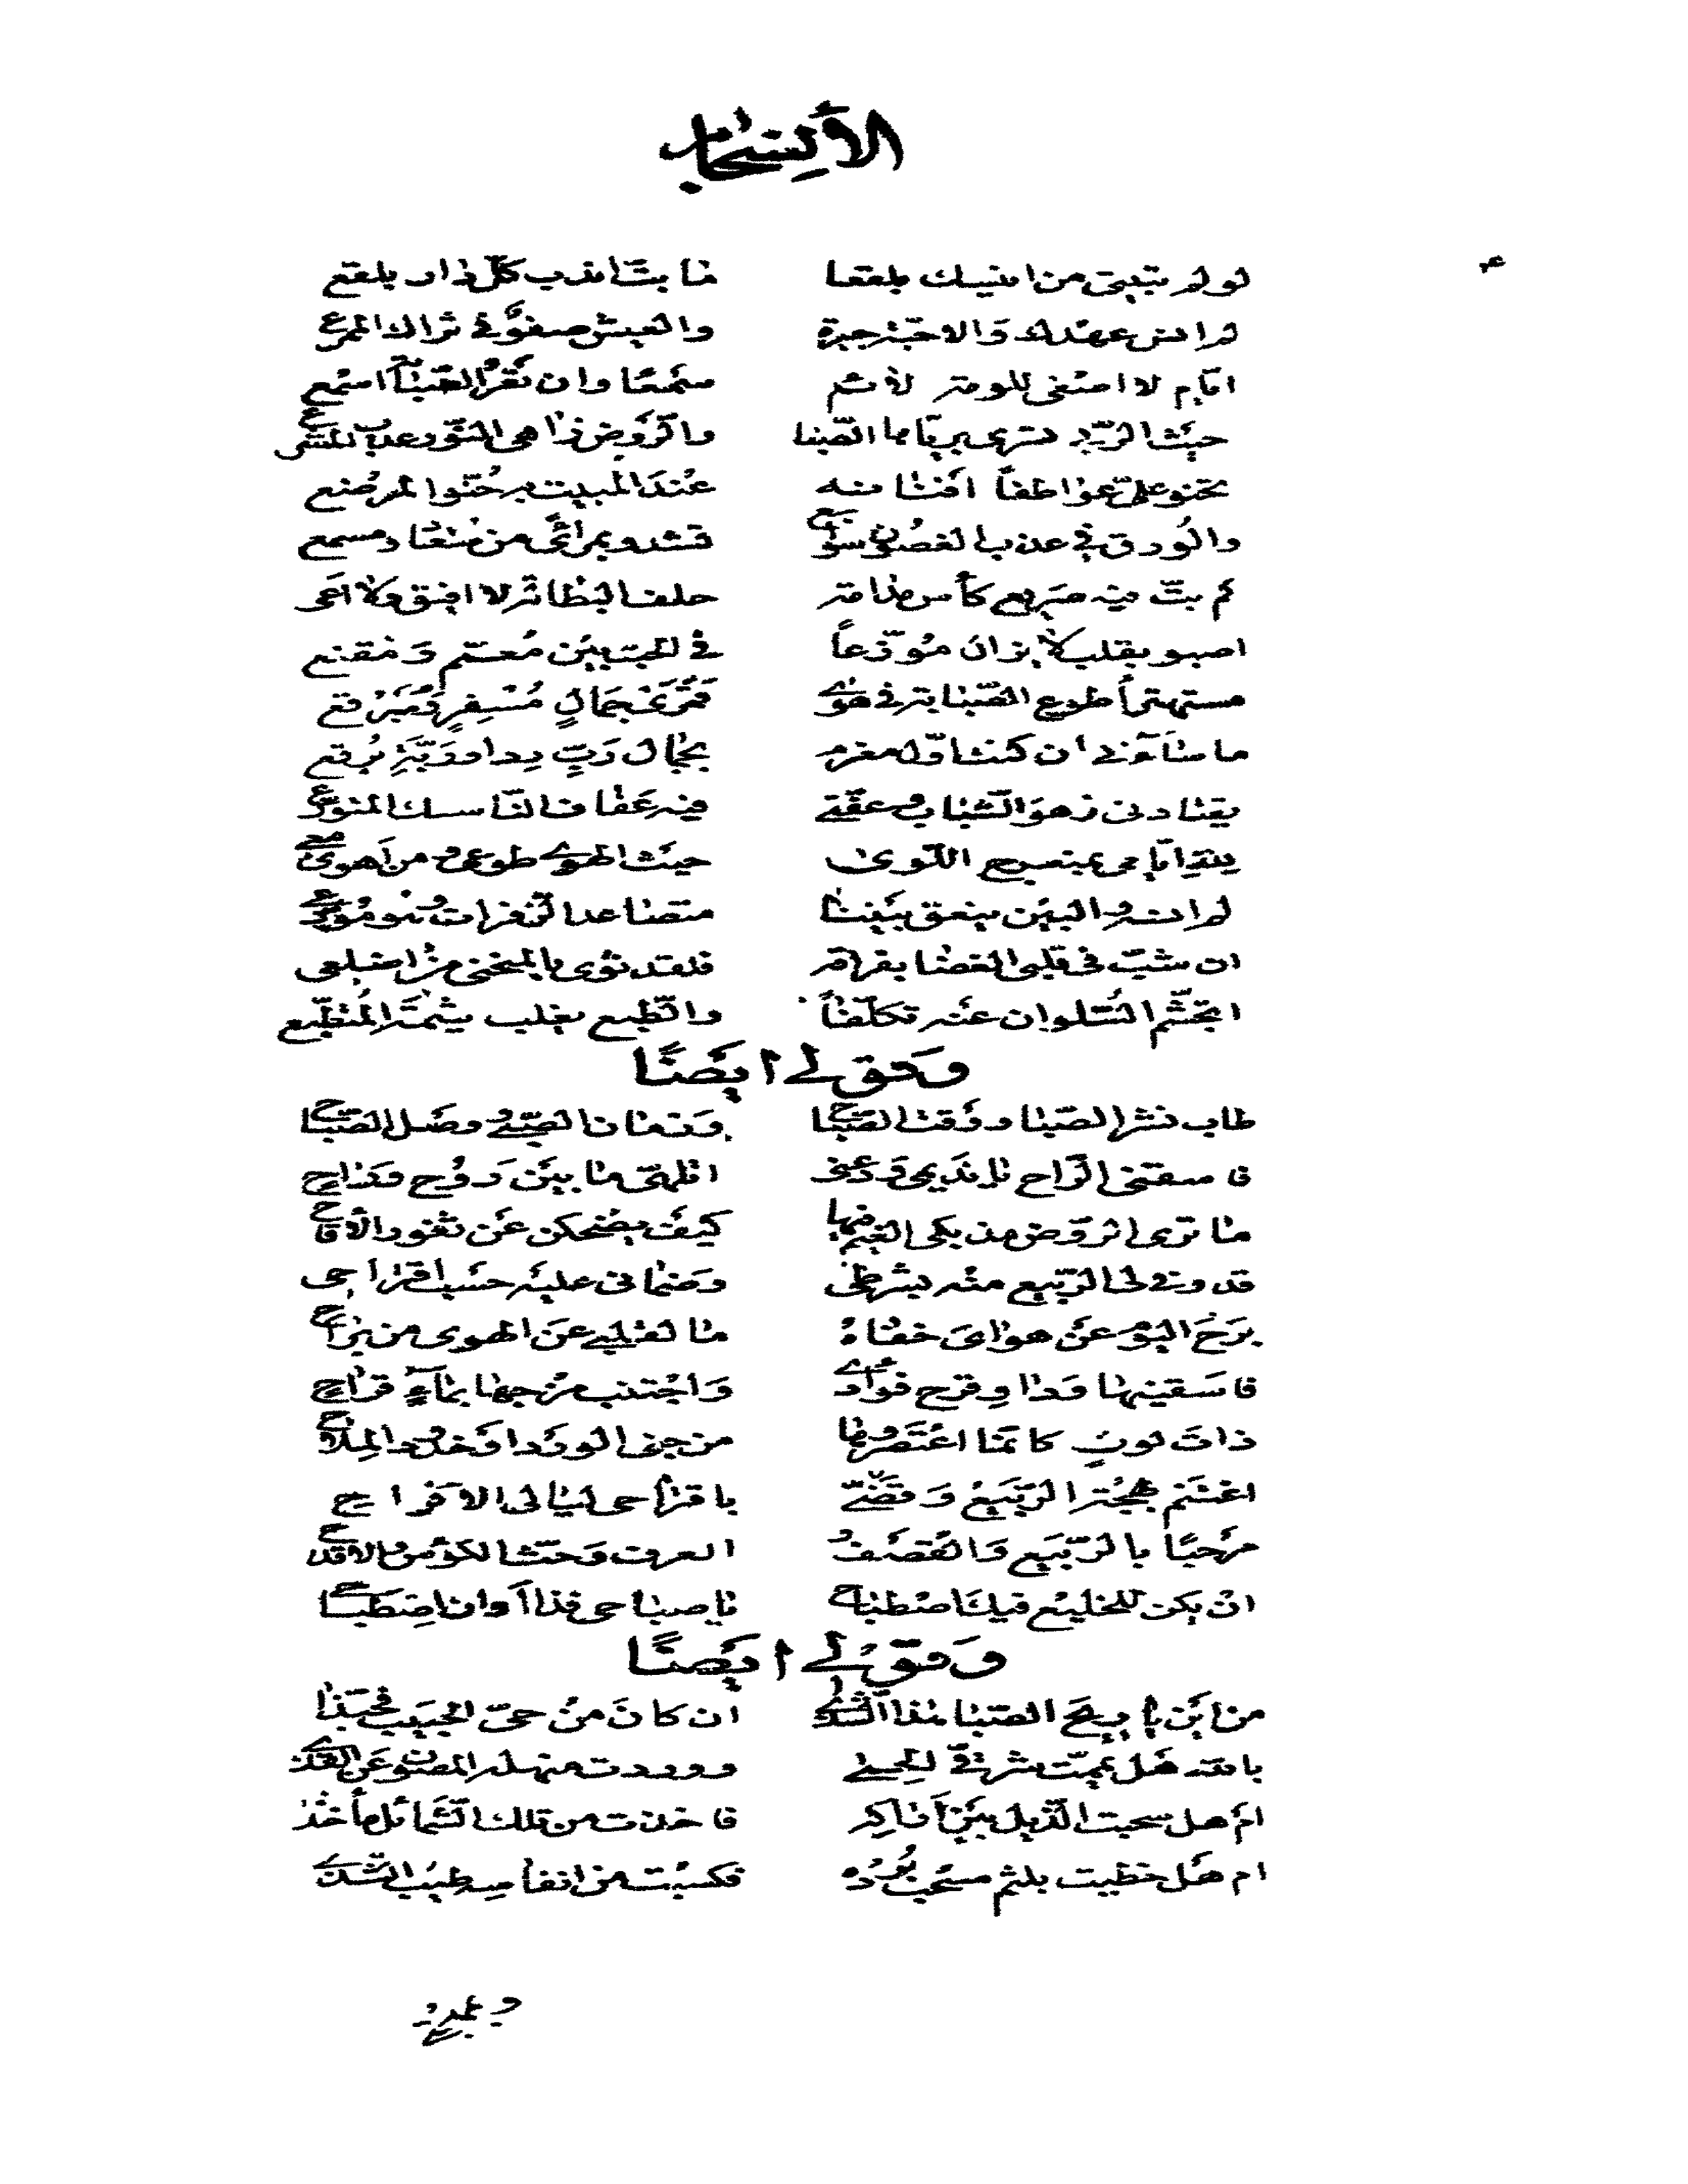 لو لم تبيتي من انيسك بلقعا ما بت اندب كل دار بلقع
لم انس عهدك والاحبة جيرة والعيش صفوٌ في ثراك الممرع
ايّام لا اصغى للومة لائم سَمعًا وان
حيث الرّبى تسرى بريّاها الصّبا والرّوض زاهى النّور عذب
تحنو عليّ عواطفاً افنانه عنْدَ المبيت حُنّوا لمرضع
والوُرق في عذب الغصُون سواجع تشدو بمرائً من سُعاد ومسمع
كم بتّ فيه صَريع كأس مدامة حلف البطالة لا افيق ولا اعى
اصبو بقلب لا يزال مُوزّعاً في الحب بين مُعمّم وَمقنع
مستهتراً طوع الصّبابة في هوى قَمَرَىْ جمالٍ مُسْفِرٍ ومُبَرْقع
ما ساءَنى أن كنت اوّل مغرم بجمال رَبّ رداء ورَبّةِ بُرقع
يقتادنى زهوَ الشّباب وعفّتي فيه عَفاف النّاسك المتورّع
للهِ ايّامى بمنعرج اللّوى حيث الهوى طوعى ومن اهوى معي
لم انسه والبين ينعق بيننا متصاعد الزّفرات وهو مُودّعي
ان شبّ في قلبي الغضا بفراقه فلقد ثوى بالمنحنى من اضلعى
اتجشّم السّلوان عنه تكلّفاً والطّبع يغلب شيمَة المُتطبّع
وَقَولي ايضًا
طاب نشر الصّبا ووَقت الصّبَاح وتعاف
فاسقني الرّاح يا نديمى وَدعنى اتلهّى ما بين رَوْح وراح
ما ترى الروض مذ بكى الغيم فيها كيف يضحكن عَن ثغور الأقاح
قد وفى لى الرّبيع منه بشرطى وضمانى عليْه حسْب اقتراحى
برَحَ اليَوْم عَنْ هواىَ خفاهُ ما لقلبي عَن الهوى من براح
فاسَقينهَا وَداوِ قرح فؤادى وَاجْتنب مزجها بماءٍ قراح
ذاتَ لونٍ كانّما اعْتَصَرُوها من جنى الورْد او خدُود الملاح
اغتنم بهجة الرّبيع وَقضّي باقتراحى ليالى الافراح
مرْحبًا بالرّبيَع وَالقصْف العزف وَحثّ الكؤوس والاقداح
انْ يكن للخليع فيك اصْطباح يا صباحى فذا أوان اصْطباحي
وَقَولُي ايضًا
من اين يا ريحَ الصّبا هذا الشّذى ان كانَ منْ حىّ الحبيَب فحبّذا
بالله هَل يمّمت شرقيَّ الحمى ووردت منهله المصُون عَن القذى
ام هل سحبت الذّيل بيْن أَراكِه فاخذت من تلك الشّمائل مأخذا
ام هَل حظيت بلثم مسْحب بُرْده فكسبْت من انفاسِه طيب الشّذى